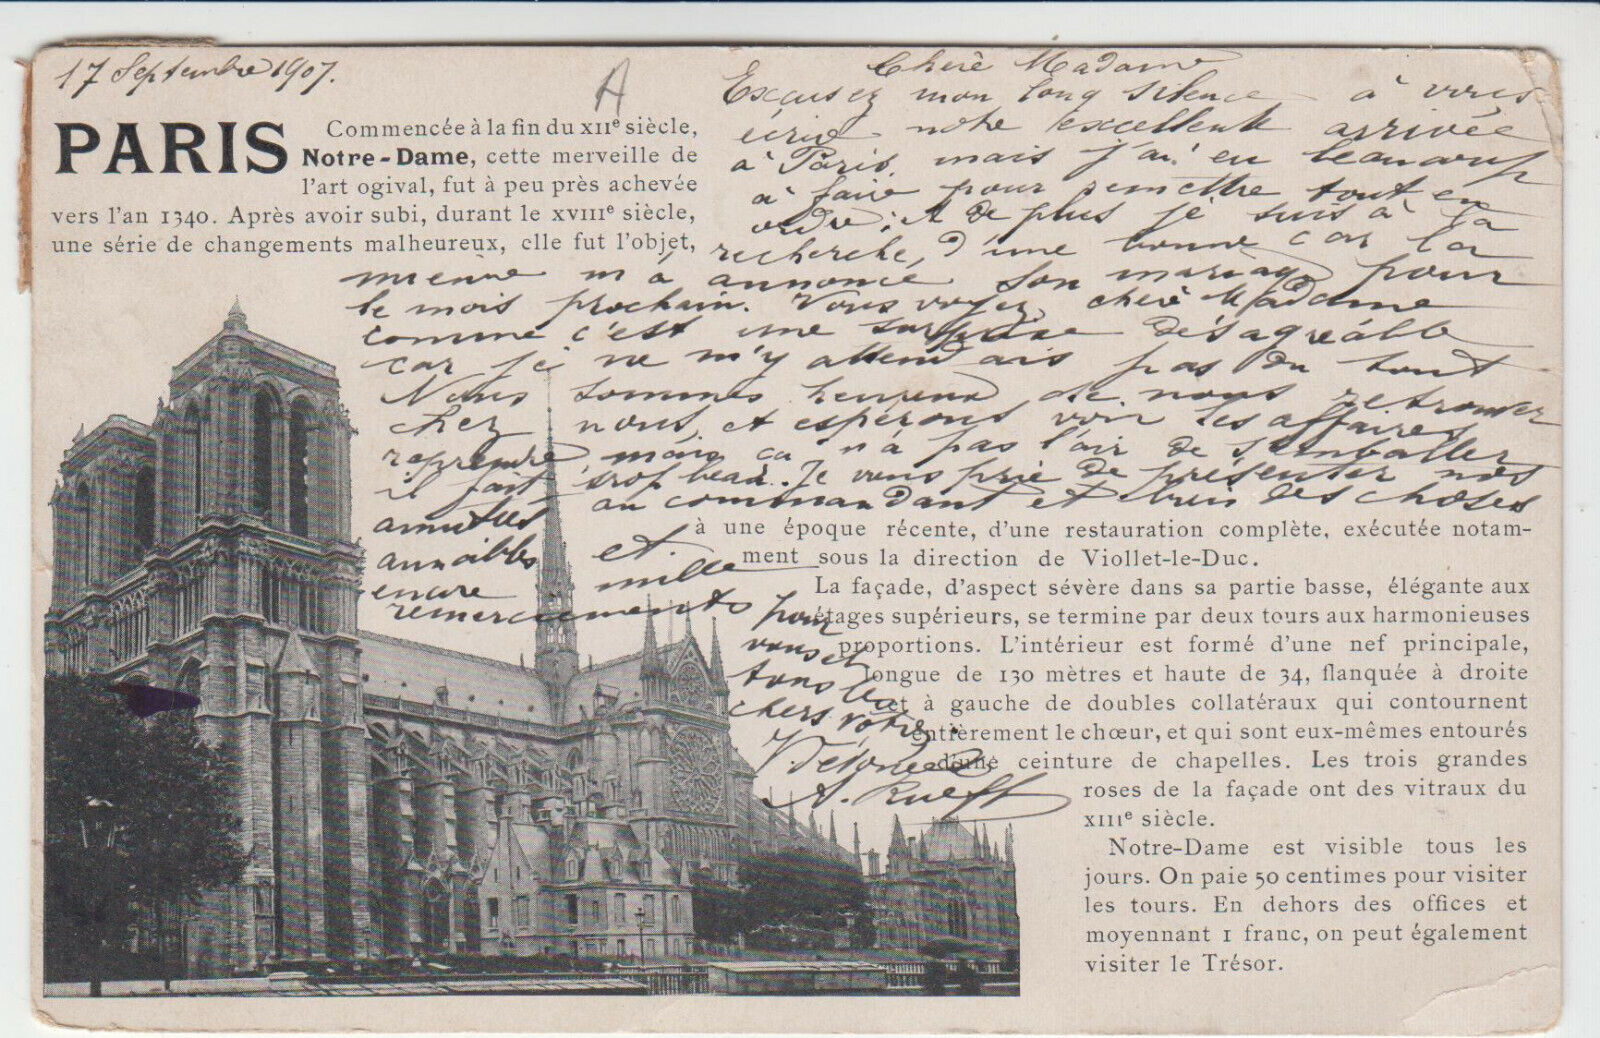 17 Septembre 1907.
A
Chère Madame
Excusez mon long silence à vous
écrire notre excellente arrivée
à Paris, mais j'ai eu beaucoup
à faire pour remettre tout en
ordre; & de plus je suis à la
recherche, d'une bonne car la
mienne m'a annoncé son mariage pour
le mois prochain. Vous voyez, chère Madame
comme c'est une surprise désagréable
car je ne m'y attendais pas du tout
Nous sommes heureux de nous retrouver
chez nous, et espérons voir les affaires
reprendre, mais ça n'a pas l'air de s'emballer
il fait trop beau. Je vous prie de présenter nos
amitiés au commandant et bien des choses
aimables et mille
encore
remerciements pour
vous et
tous les
chers vôtres
A. Rueff
PARIS
Commencée à la fin du XIIe siècle,
Notre-Dame, cette merveille de
l'art ogival, fut à peu près achevée
vers l'an 1340. Après avoir subi, durant le XVIIIe siècle,
une série de changements malheureux, elle fut l'objet,
à une époque récente, d'une restauration complète, exécutée notam-
ment sous la direction de Viollet-le-Duc.
La façade, d'aspect sévère dans sa partie basse, élégante aux
étages supérieurs, se termine par deux tours aux harmonieuses
proportions. L'intérieur est formé d'une nef principale,
longue de 130 mètres et haute de 34, flanquée à droite
et à gauche de doubles collatéraux qui contournent
entièrement le chœur, et qui sont eux-mêmes entourés
d'une ceinture de chapelles. Les trois grandes
roses de la façade ont des vitraux du
XIIIe siècle.
Notre-Dame est visible tous les
jours. On paie 50 centimes pour visiter
les tours. En dehors des offices et
moyennant 1 franc, on peut également
visiter le Trésor.